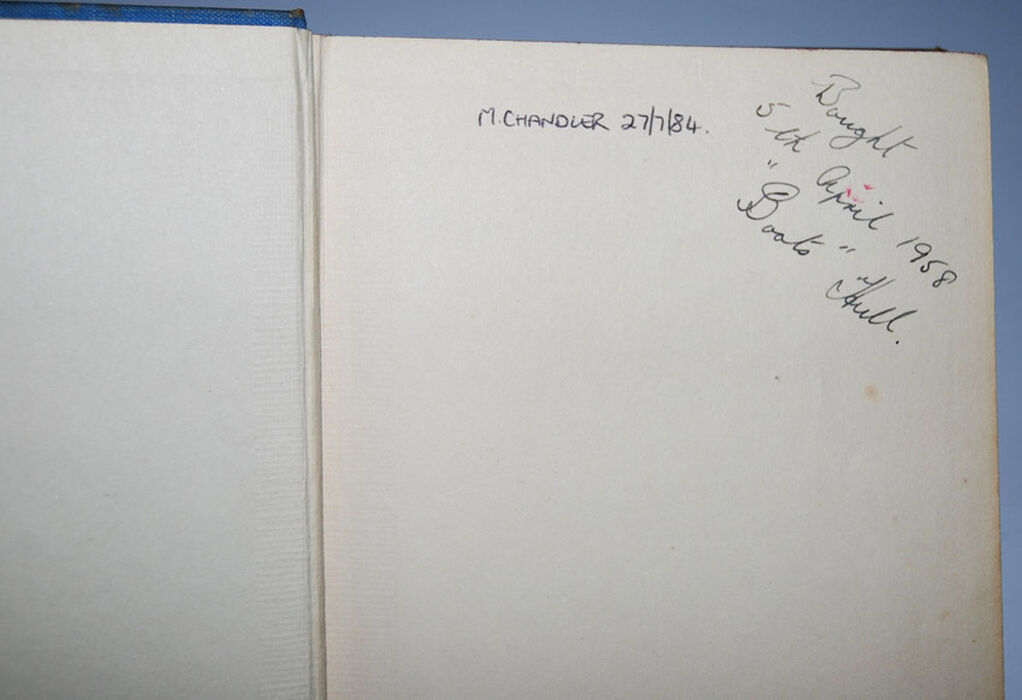 M. CHANDLER 27/7/84.
Bought
5th April 1958
"Boots" Hull.